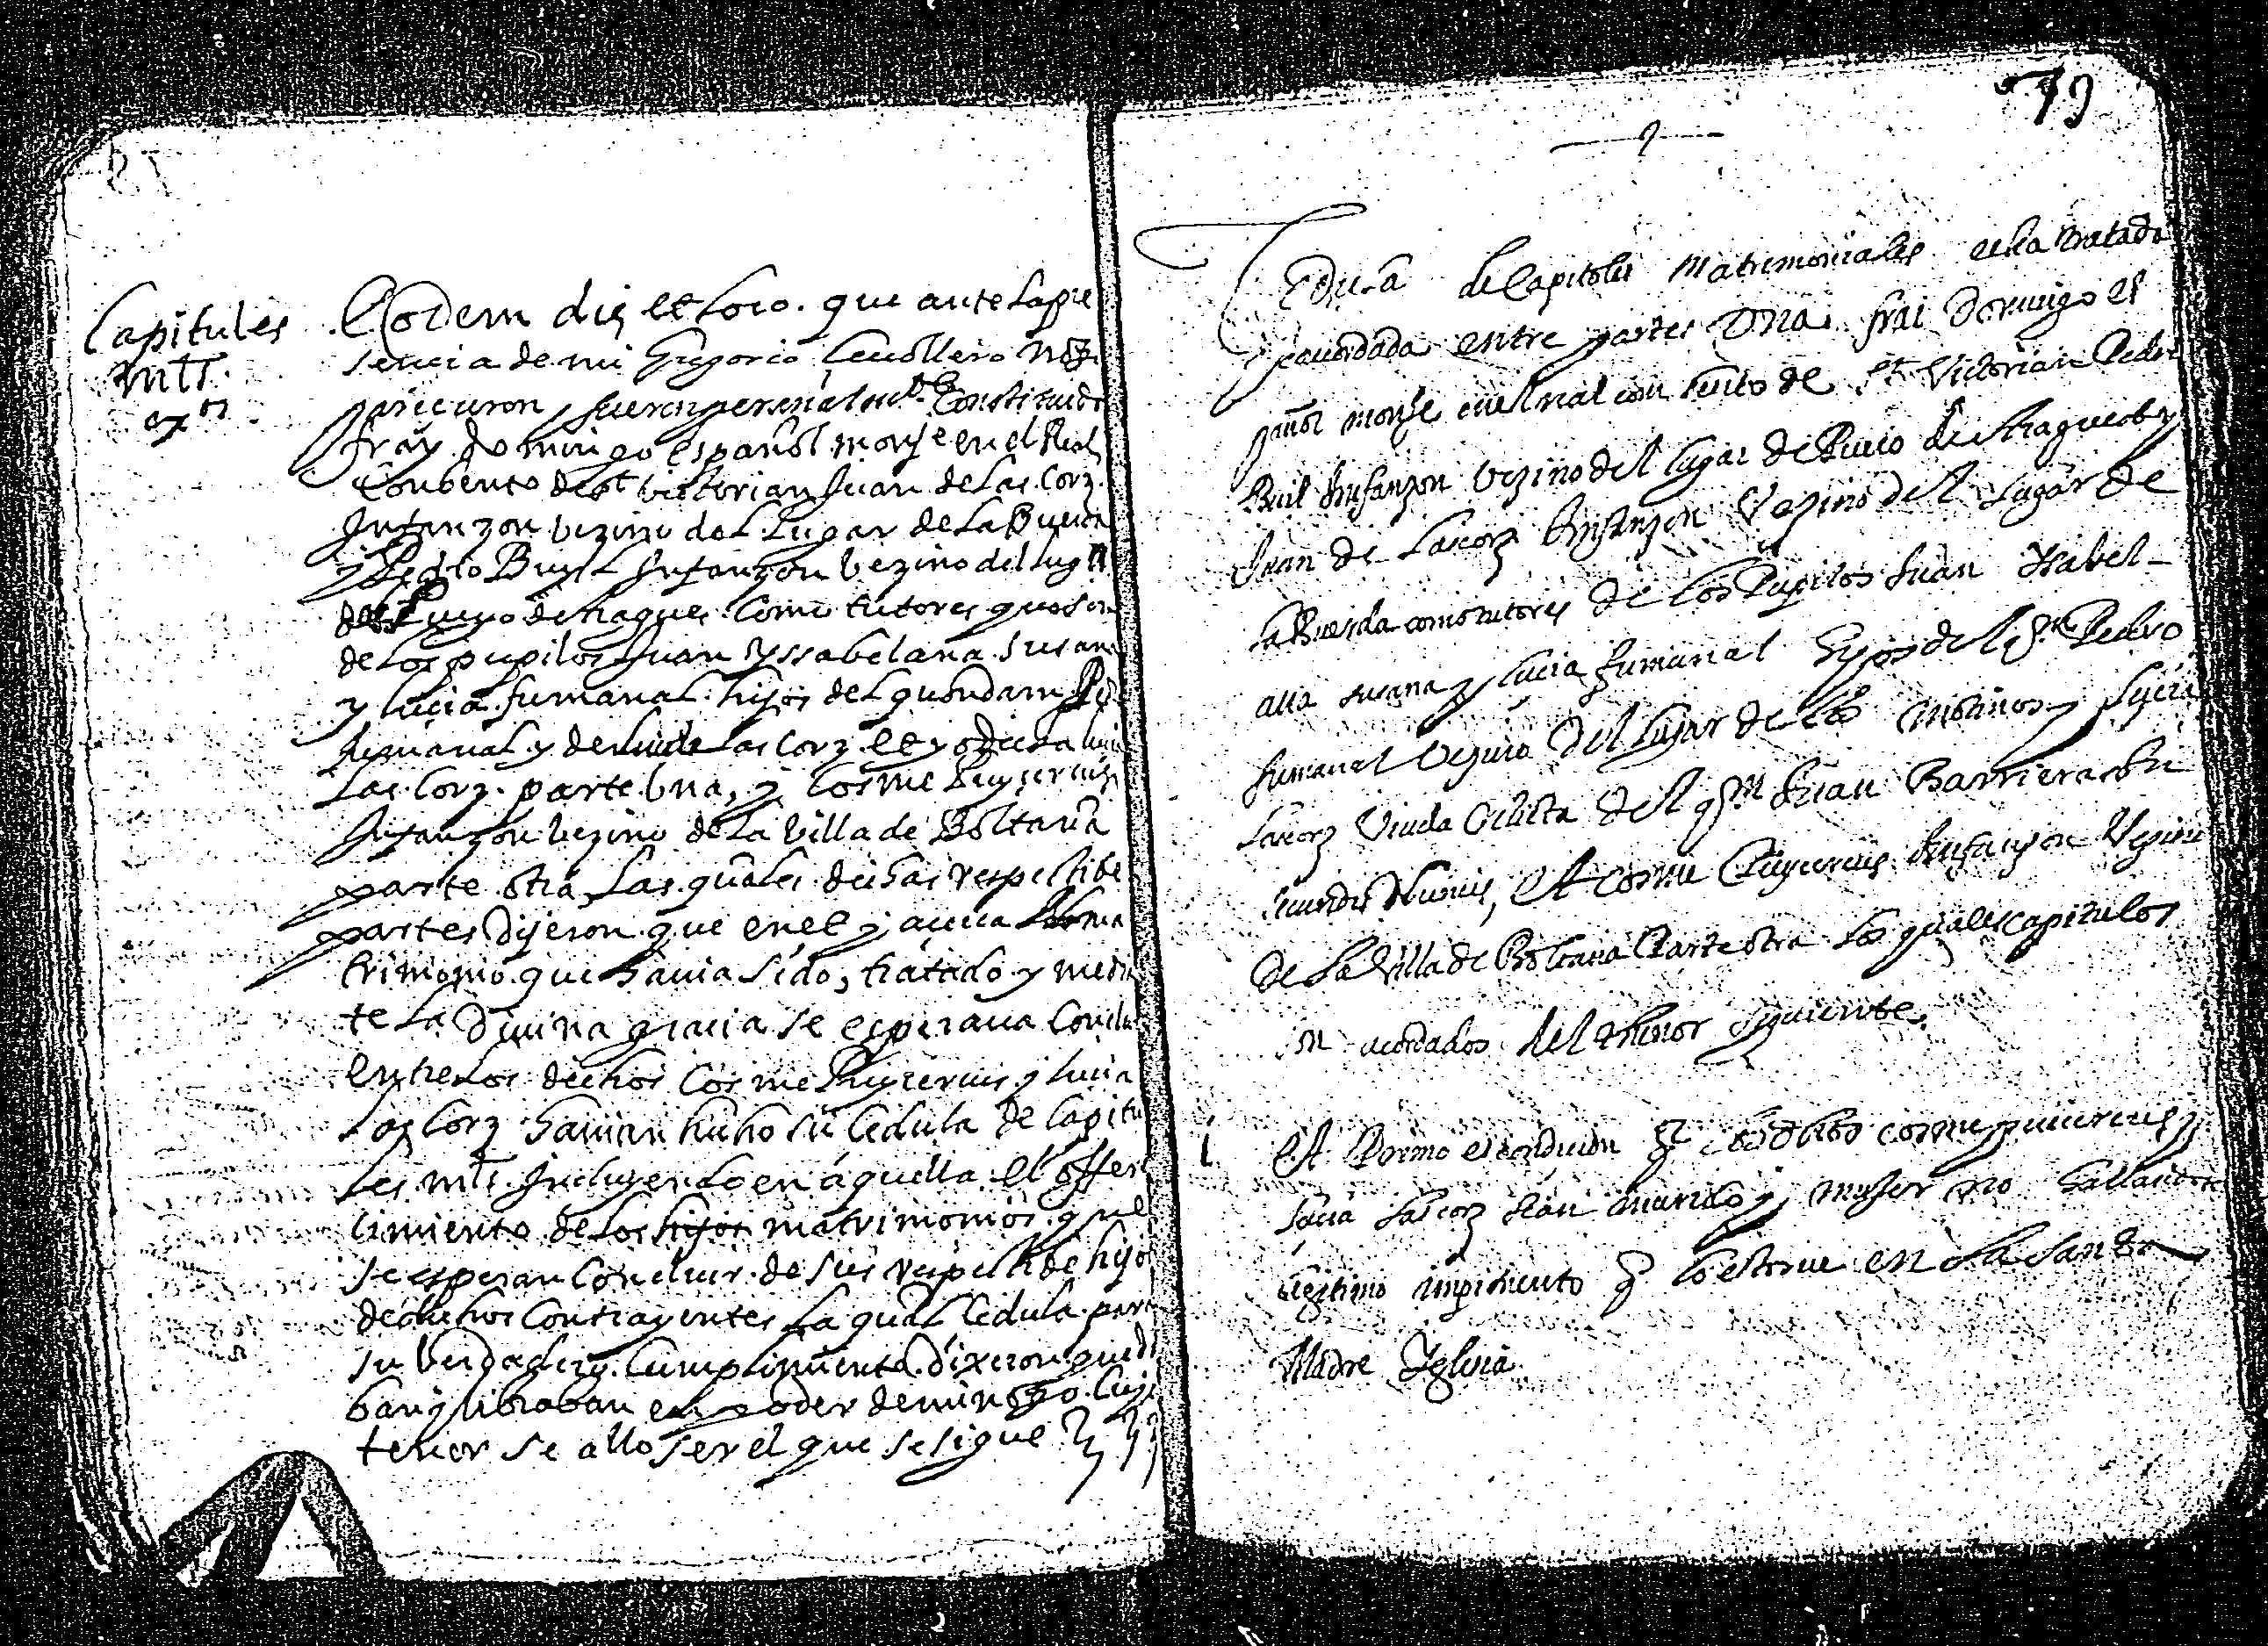 Capitules
mts.
extr
Eodem die et loco. que ante la pre
sencia de mi Gregorio Cavallero Noto
parecieron y fueron personalmte Constituidos
fray domingo español monje en el Real
Conbento de st Victorian Juan de las Corz.
Infanzon vezino del Lugar de la Buerda
y Pedro Buyl Infanzon vezino del lugar
del Pueyo de Araguas Como tutores que son
de los pupilos Juan Yssabel ana susana
y lucia fumanal. hijos del quondam Po
fumanal y de lucia las Corz et yo dicha lucia
las Corz. parte una, y Cosme Puycercus
Infanzon vezino de la Villa de Boltaña
parte otra, Las quales dichas respectibe
partes Dijeron. que en el y acerca el ma
trimonio. que havia sido, tratado y median
te La Divina gracia se esperava Concluir
entre los dichos Cosme Puycercus y lucia
las Corz havian hecho su Cedula de Capitu
les mts. Incluyendo en aquella. el offer
cimiento de los hijos matrimonios. que
se esperan Concluir. de sus respectibe hijos
de dichos Contrayentes La qual Cedula. para
su berdadero. Cumplimiento. dixeron que da
ban y libraban en poder de mi noto. Cuyo
tenor se allo ser el que se sigue
79
Cedula de Capitoles Matrimoniales echa tratada
y acordada entre partes Una frai Domingo es
pañol monje en el rial conbento de st Victorian Pedro
Buil Infanzon Vezino del lugar de Pueio de Araguas y
Juan de Lascorz Infanzon Vezino del Lugar de
laBuerda como tutores de los Pupilos Juan Ysabel
ana susana y lucia fumanal hijos del qm Pedro
fumanal Vezino del lugar de los Molinos y lucia
lascorz Viuda relicta del qm Juan Barriera
secundis nunciis, et cosme Puycercus Infanzon Vezino
de la Villa de Boltaña Parte otra los quales capitulos
son acordados del thenor siguiente.
1 Et Primo es condicion q los dichos cosme puicercus y
lucia lascorz sean marido y muger no hallandose
legitimo impidiento q lo estorue en la santa
Madre Yglesia